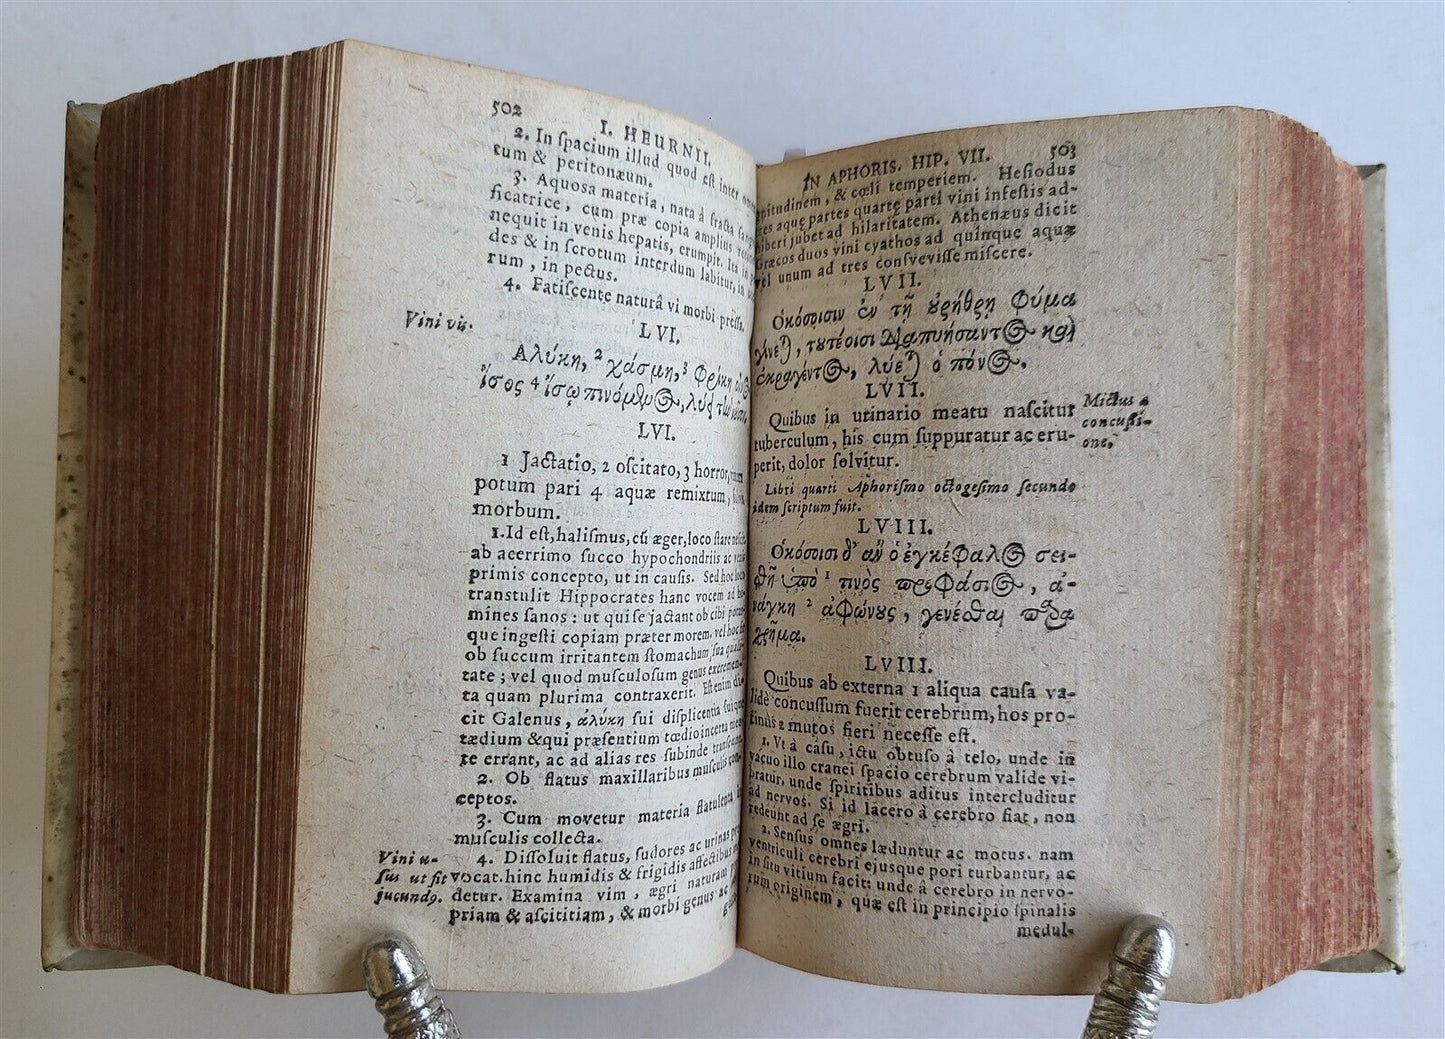 502
I. HEURNII,
2. In ſpacium illud quod eſt inter
tum & peritonæum.
3. Aquosa materia, nata à fracta
ficatrice, cum præ copia amplius
nequit in venis hepatis, erumpit. Ita in
des & in ſcrotum interdum labitur, in
rum, in pectus.
4. Fatiſcente naturâ vi morbi preſſa.
LVI.
Vini vis.
Αλύκη, ² χάσμη, ³ Φρίκη
ἴσος ⁴ ἴσῳ πινόμενος, λύει
LVI.
1 Jactatio, 2 oſcitatio, 3 horror,
potum pari 4 aquæ remixtum,
morbum.
1. Id eſt, haliſmus, cũ æger, loco ſtare
ab acerrimo ſucco hypochondriis ac
primis concepto, ut in cauſis. Sed hoc loco
transtulit Hippocrates hanc vocem ad ho-
mines ſanos: ut qui ſe jactant ob cibi
que ingeſti copiam præter morem, vel
ob ſuccum irritantem ſtomachum ſua quali-
tate; vel quod muſculoſum genus excremen-
ta quam plurima contraxerit. Eſt enim di-
cit Galenus, ἀλύκη ſui diſplicentia
tædium & qui præſentium tœdio incerta
te errant, ac ad alias res ſubinde
2. Ob flatus maxillaribus muſculis con-
ceptos.
3. Cum movetur materia flatulenta in
muſculis collecta.
Vini u-
ſus ut fit
jucundꝰ.
4. Diſſoluit flatus, ſudores ac urinas
vocat. hinc humidis & frigidis affectibus
detur. Examina vim, ægri naturam
priam & aſcititiam, & morbi genus ac
IN APHORIS. HIP. VII.
503
gnitudinem, & cœli temperiem. Heſiodus
tres aquę partes quartę parti vini infeſtis ad-
hiberi jubet ad hilaritatem. Athenæus dicit
Græcos duos vini cyathos ad quinque aquæ
vel unum ad tres conſveviſſe miſcere.
LVII.
Ὁκόσοισιν ἐν τῇ οὐρήθρῃ Φύμα
γίνεται, τουτέοισι διαπυήσαντος καὶ
ἐκραγέντος, λύεται ὁ πόνος.
LVII.
Quibus in urinario meatu naſcitur
tuberculum, his cum ſuppuratur ac eru-
perit, dolor ſolvitur.
Mictus à
concuſſi-
one.
Libri quarti Aphoriſmo octogeſimo ſecundo
idem ſcriptum fuit.
LVIII.
Ὁκόσοισι δ' ἂν ὁ ἐγκέΦαλος σει-
σθῇ ὑπό ¹ τινὸς προΦάσιος, ἀ-
νάγκη ² ἀΦώνους, γενέσθαι παρα-
χρῆμα.
LVIII.
Quibus ab externa 1 aliqua cauſa va-
lidè concuſſum fuerit cerebrum, hos pro-
tinùs 2 mutos fieri neceſſe eſt.
1. Vt à caſu, ictu obtuſo â telo, unde in
vacuo illo cranei ſpacio cerebrum valide vi-
bratur, unde ſpiritibus aditus intercluditur
ad nervos. Si id lacero â cerebro fiat, non
redeunt ad ſe ægri.
2. Senſus omnes læduntur ac motus. nam
ventriculi cerebri ejusque pori turbantur, ac
in ſitu vitium facit: unde â cerebro in nervo-
rum originem, quæ eſt in principio ſpinalis
medul-